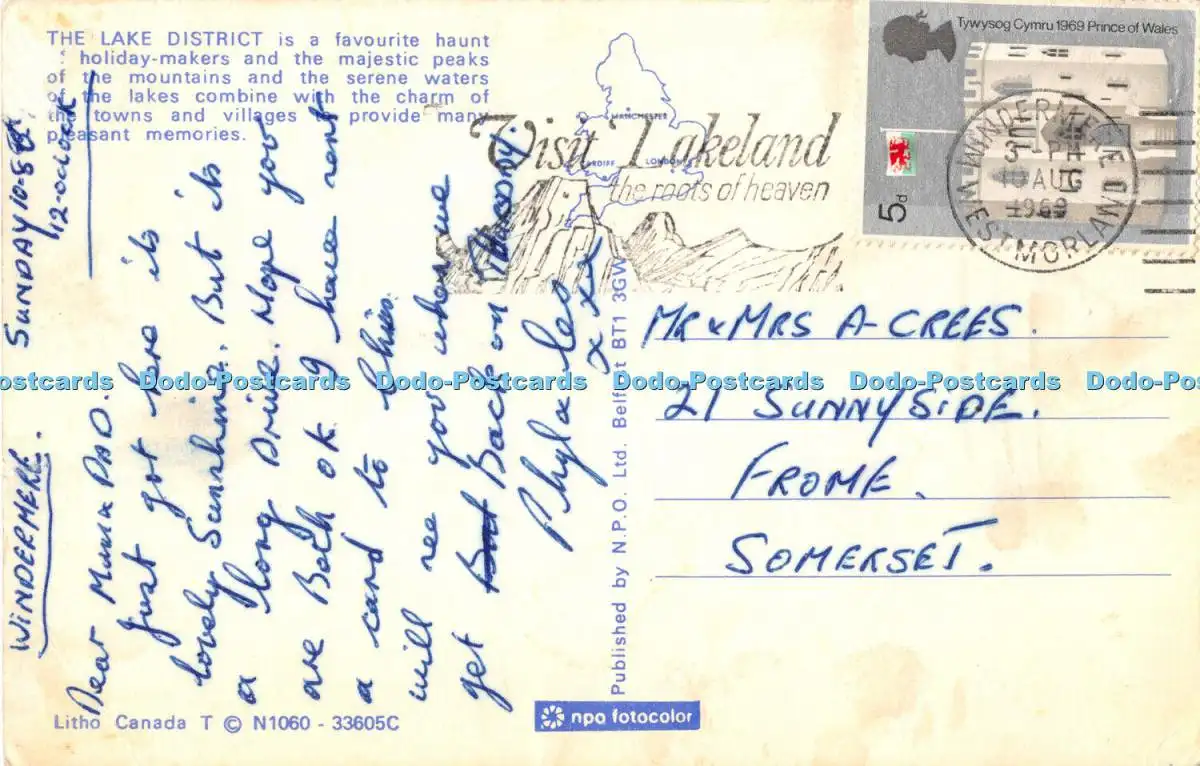 THE LAKE DISTRICT is a favourite haunt
of holiday-makers and the majestic peaks
of the mountains and the serene waters
of the lakes combine with the charm of
the towns and villages to provide many
pleasant memories.
WINDERMERE. SUNDAY 10-8
12-oclock
Dear Mum & DAD.
Just got here its
lovely Sunshine. But its
a long Drive. Hope you
are Both ok. I have sent
a card to
will see you when we
get Back on
Phyl & Les
x x x
Litho Canada T © N1060 - 33605C
npo fotocolor
Published by N.P.O. Ltd. Belfast BT1 3GW
MANCHESTER
CARDIFF LONDON
Visit Lakeland
the roots of heaven
Tywysog Cymru 1969 Prince of Wales
5d
WINDERMERE
PM
10 AUG
1969
WESTMORLAND
MR & MRS A-CREES.
21 SUNNYSIDE.
FROME.
SOMERSET.
Dodo-Postcards Dodo-Postcards Dodo-Postcards Dodo-Postcards Dodo-Postcards Dodo-Postcards